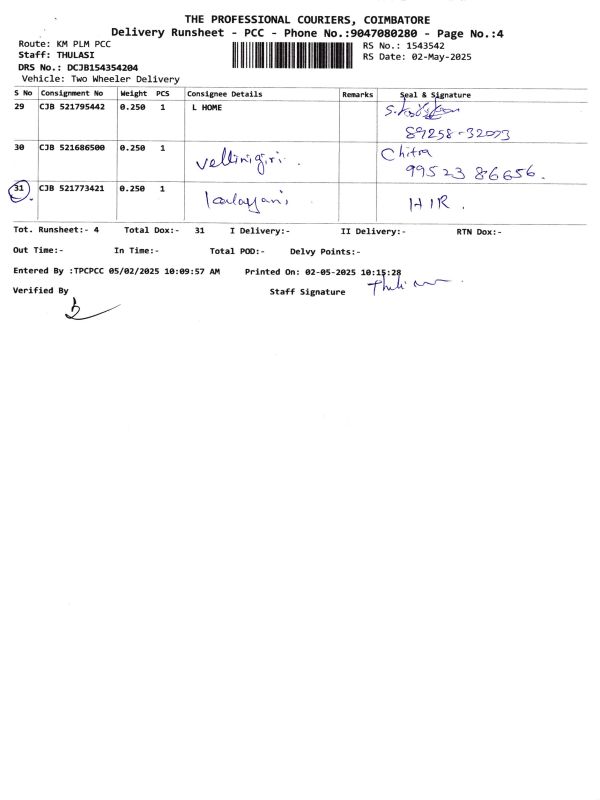 THE PROFESSIONAL COURIERS, COIMBATORE
Delivery Runsheet - PCC - Phone No.:9047080280 - Page No.:4
Route: KM PLM PCC
RS No.: 1543542
Staff: THULASI
RS Date: 02-May-2025
DRS No.: DCJB154354204
Vehicle: Two Wheeler Delivery
S No Consignment No Weight PCS Consignee Details Remarks Seal & Signature
29 CJB 521795442 0.250 1 L HOME
89258-32093
30 CJB 521686500 0.250 1 vellinigiri. Chitra
99523 86656.
31 CJB 521773421 0.250 1 kalayani HIR.
Tot. Runsheet:- 4 Total Dox:- 31 I Delivery:- II Delivery:- RTN Dox:-
Out Time:- In Time:- Total POD:- Delvy Points:-
Entered By :TPCPCC 05/02/2025 10:09:57 AM Printed On: 02-05-2025 10:15:28
Verified By Staff Signature